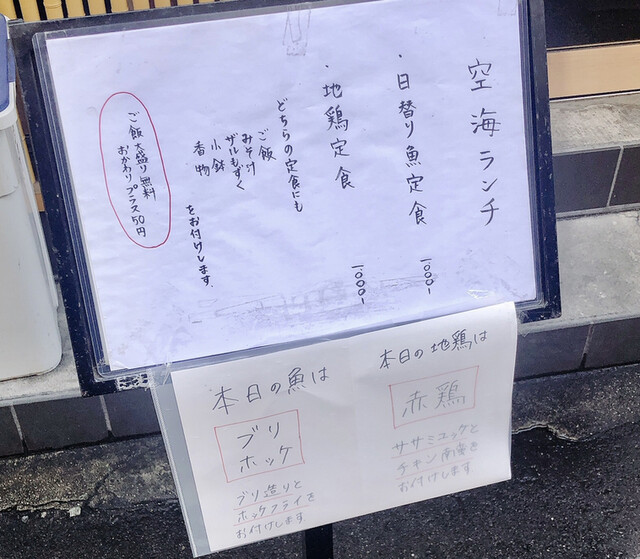 空海ランチ
・日替り魚定食 1000-
・地鶏定食 1000-
どちらの定食にも
ご飯
みそ汁
ザルもずく
小鉢
香物
をお付けします。
ご飯大盛り無料
おかわりプラス50円
本日の地鶏は
赤鶏
ササミユッケと
チキン南蛮を
お付けします
本日の魚は
ブリ
ホッケ
ブリ造りと
ホッケフライを
お付けします